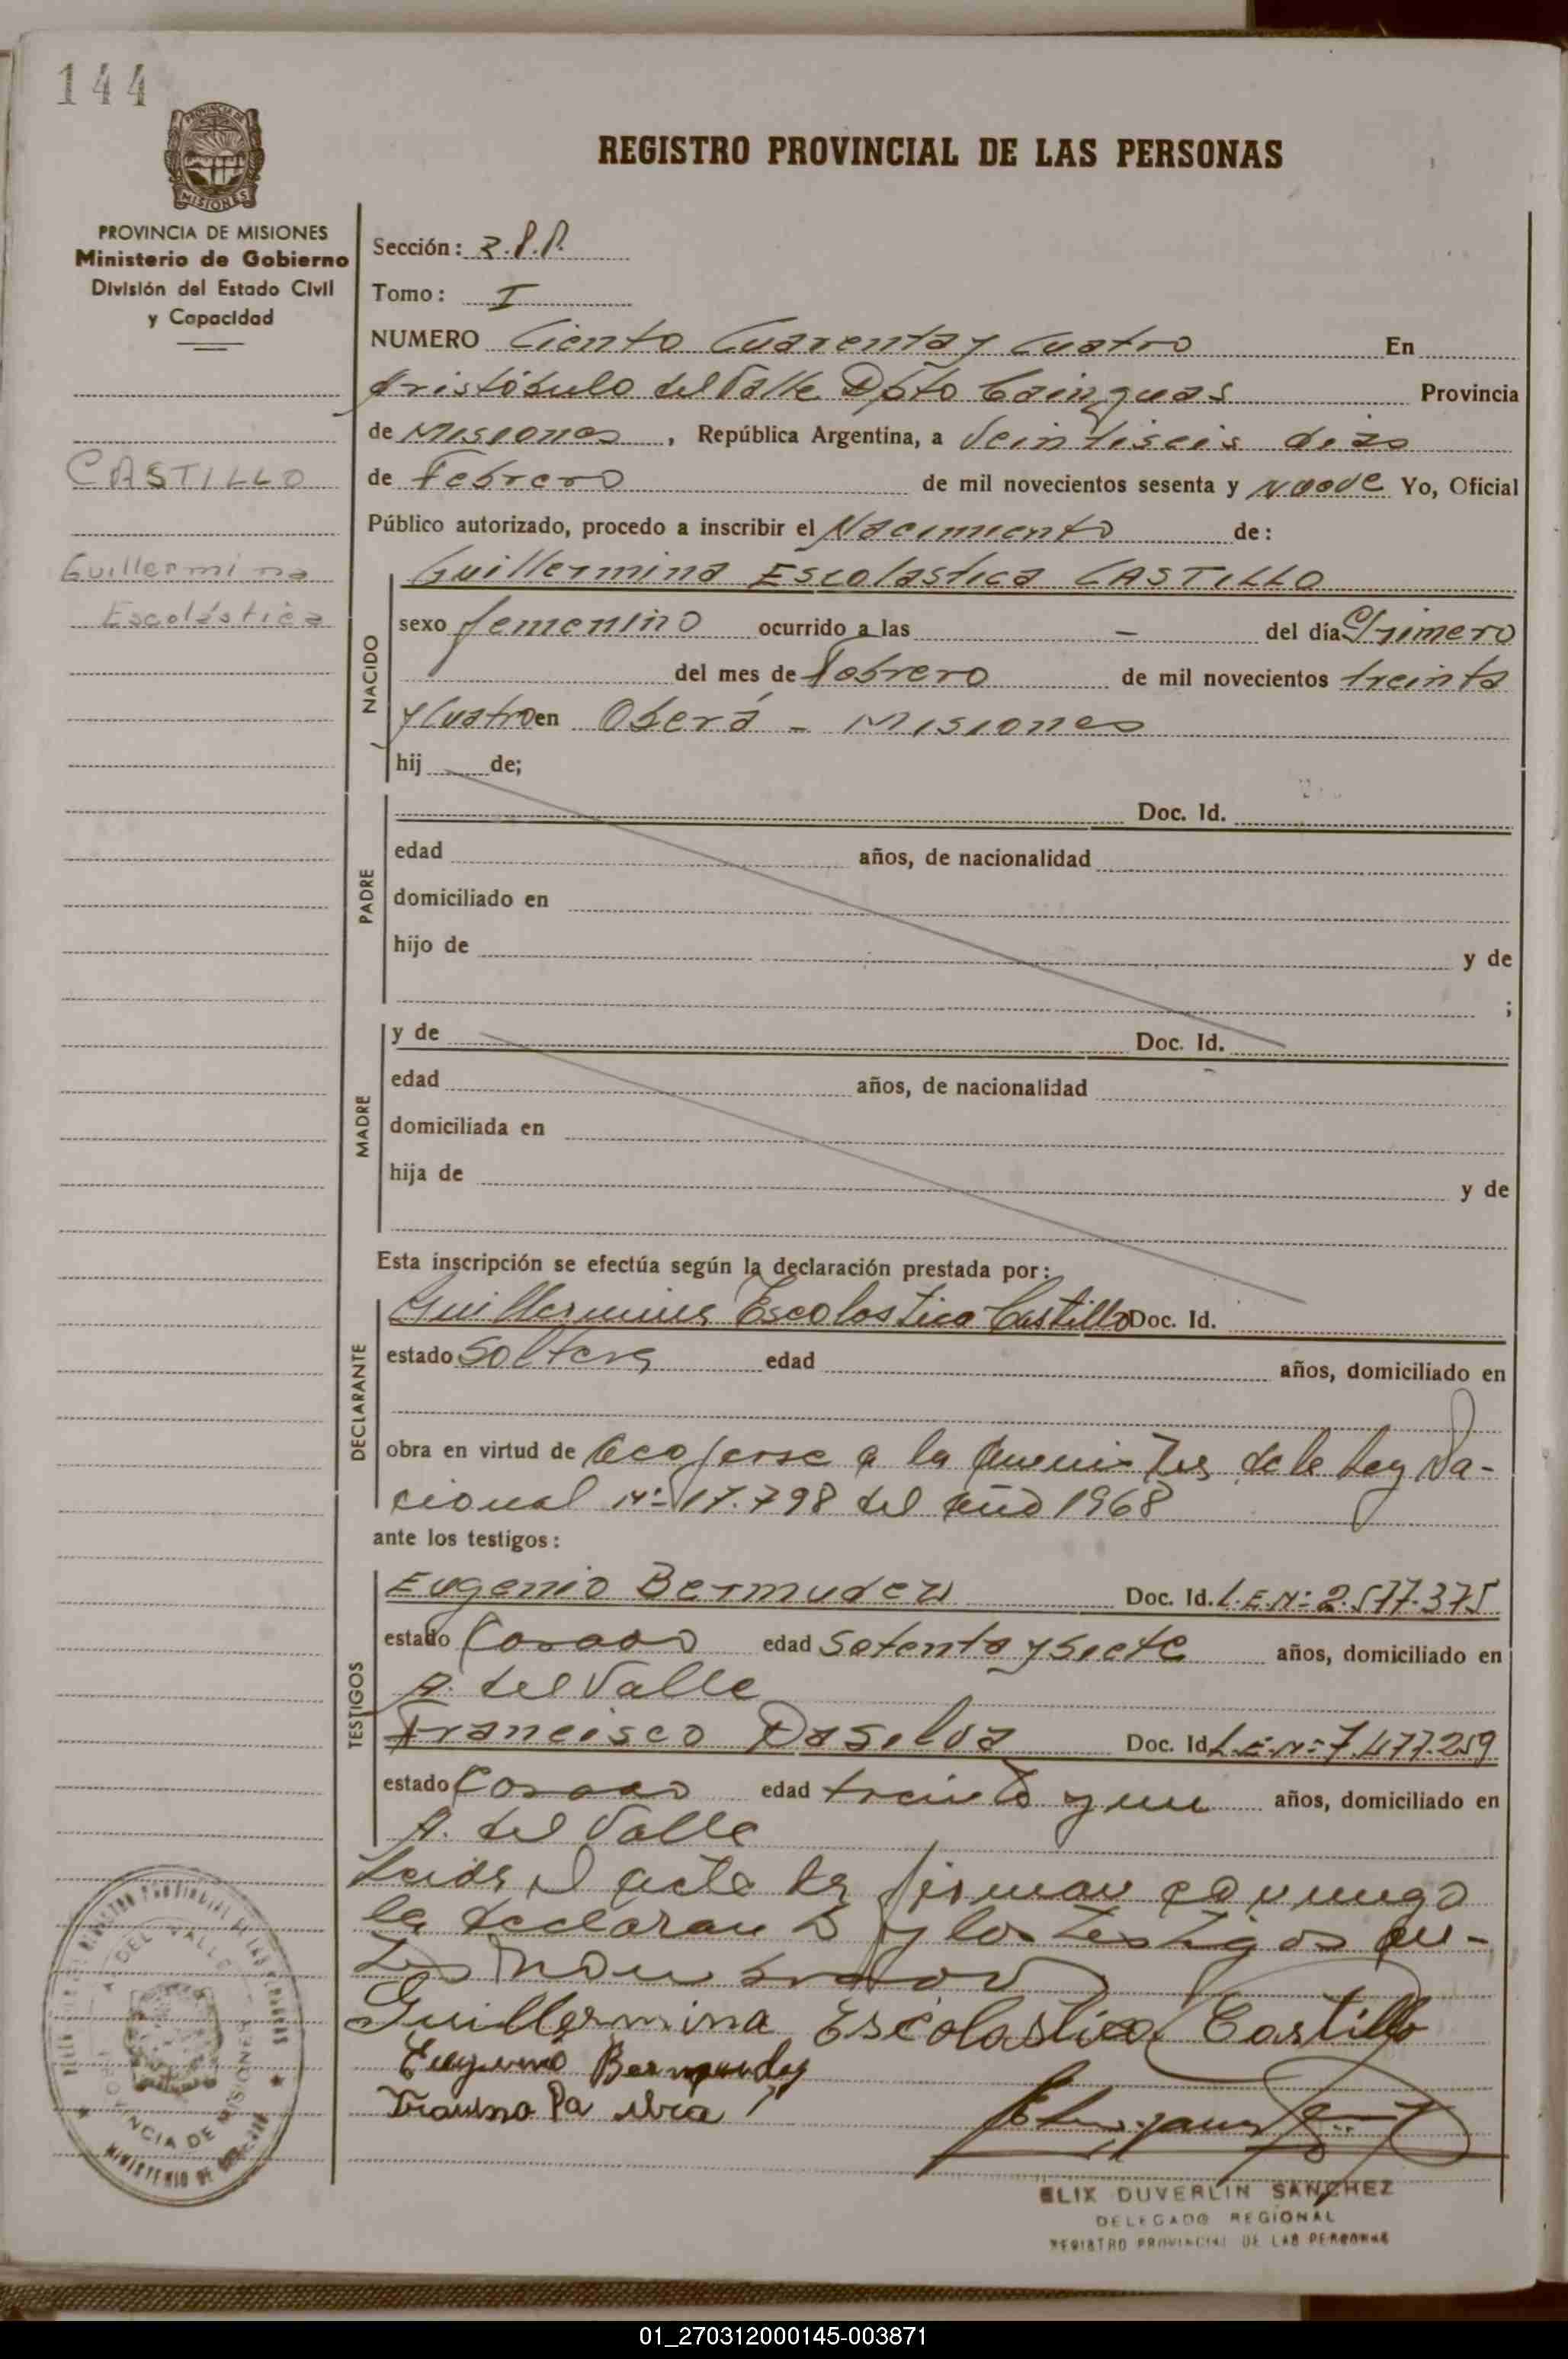 144
PROVINCIA DE
MISIONES
REGISTRO PROVINCIAL DE LAS PERSONAS
PROVINCIA DE MISIONES
Ministerio de Gobierno
División del Estado Civil
y Capacidad
CASTILLO
Guillermina
Escolástica
Sección: R.P.P.
Tomo: I
NUMERO Ciento Cuarenta y Cuatro En
Aristóbulo del Valle Dpto Cainguas Provincia
de Misiones, República Argentina, a Veintiseis dias
de Febrero de mil novecientos sesenta y nueve Yo, Oficial
Público autorizado, procedo a inscribir el Nacimiento de:
NACIDO
Guillermina Escolastica CASTILLO
sexo femenino ocurrido a las — del día Primero
del mes de Febrero de mil novecientos treinta
y Cuatro en Oberá - Misiones
hij de;
PADRE
Doc. Id.
edad años, de nacionalidad
domiciliado en
hijo de y de
;
MADRE
y de Doc. Id.
edad años, de nacionalidad
domiciliada en
hija de y de
Esta inscripción se efectúa según la declaración prestada por:
DECLARANTE
Guillermina Escolastica Castillo Doc. Id.
estado Soltera edad años, domiciliado en
obra en virtud de acojerse a la de la Ley Na-
cional Nº 17.798 del año 1968
ante los testigos:
TESTIGOS
Eugenio Bermudez Doc. Id. L.E.Nº 2.577.375
estado Casado edad Setenta y Siete años, domiciliado en
A. del Valle
Francisco Dasilva Doc. Id. L.E.Nº 7.477.259
estado Casado edad treinta y un años, domiciliado en
A. del Valle
Leida el acta la firman conmigo
la declarante y los testigos an-
tes nombrados
Guillermina Escolastica Castillo
Eugenio Bermudez
ELIX DUVERLIN SANCHEZ
DELEGADO REGIONAL
REGISTRO PROVINCIAL DE LAS PERSONAS
A. DEL VALLE
PROVINCIA DE MISIONES
01_270312000145-003871